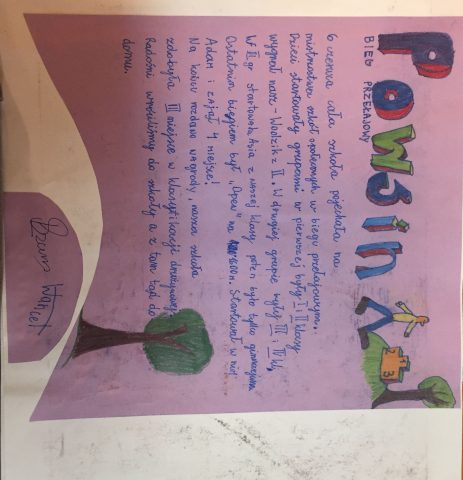 Powsin
BIEG PRZEŁAJOWY
6 czerwca cała szkoła pojechała na
mistrzostwa szkół społecznych w biegu przełajowym.
Dzieci startowały grupami w pierwszej były I i II klasy
wygrał nasz - Wodzik z II. W drugiej grupie były III i IV kl.
W II gr startowała Asia z naszej klasy potem było tylko gimnazjum
Ostatnim biegiem był "Open" na 1600m. Startował w nim
Adam i zajął 4 miejsce!
Na końcu rozdano nagrody, nasza szkoła
zdobyła III miejsce w klasyfikacji drużynowej
Radośni wróciliśmy do szkoły a z tam tąd do
domu.
1
2
3